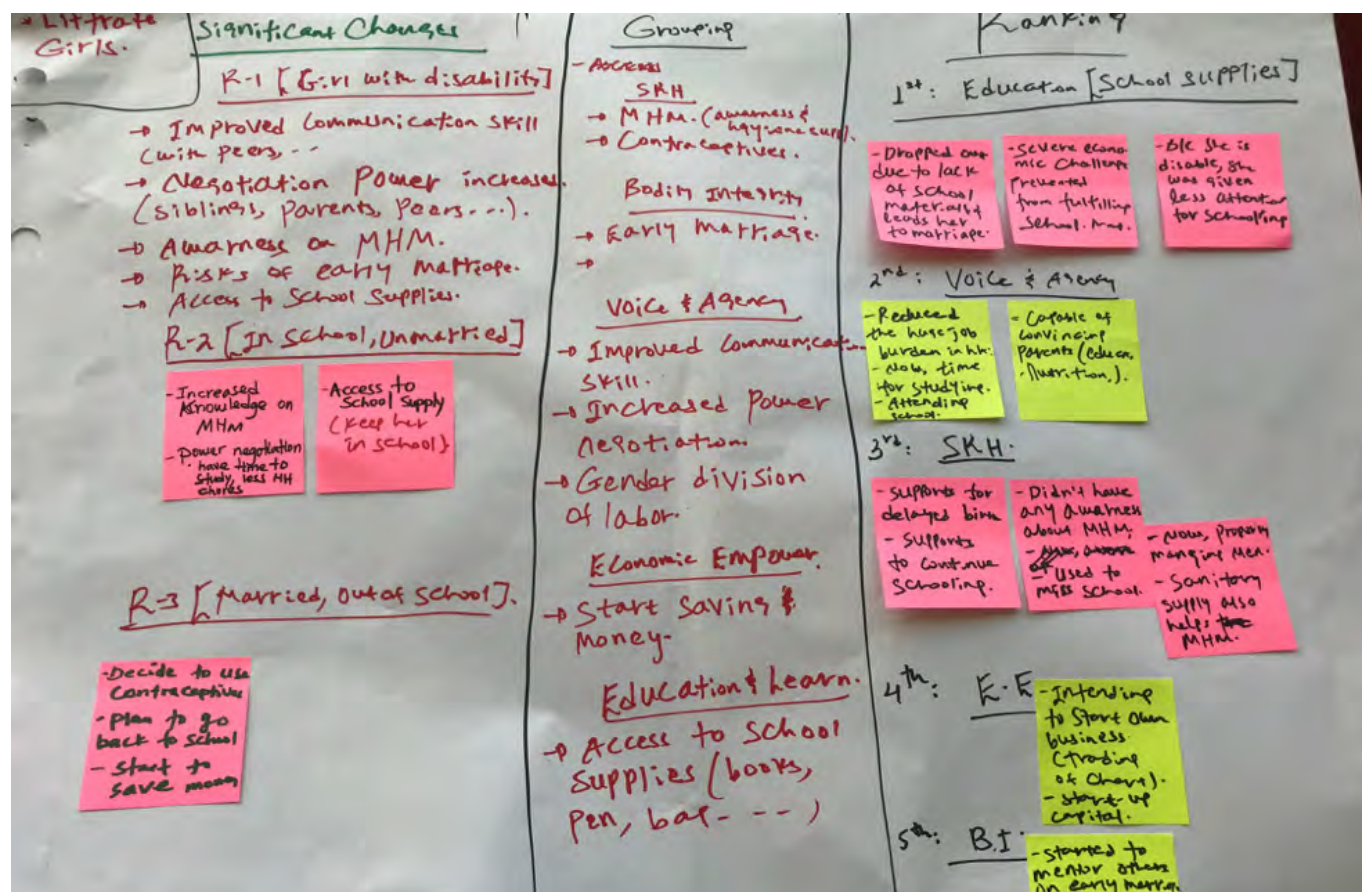 * Littrate
Girls.
Significant Changes
R-1 [Girl with disability]
→ Improved Communication skill
(with peers, --
→ Negotiation Power increases.
(siblings, parents, Peers---).
→ Awarness on MHM.
→ Risks of early Marriage.
→ Access to School Supplies.
R-2 [In school, Unmarried]
- Increased
Knowledge on
MHM
- power negotiation
have time to
study, less HH
chores
- Access to
School Supply
(Keep her
in school)
R-3 [Married, out of school].
- Decide to use
Contraceptives
- Plan to go
back to school
- Start to
save money
Grouping
- Access
SRH
→ MHM. (awarness &
→ Contraceptives.
Bodily Integrity
→ Early Marriage.
→
Voice & Agency
→ Improved Communication
skill.
→ Increased Power
negotiation.
→ Gender division
of labor.
Economic Empower.
→ Start Saving &
Money-
Education & Learn.
→ Access to School
Supplies (books,
Pen, bag- - - )
Ranking
1st: Education [School supplies]
- Dropped out
due to lack
of school
materials &
leads her
to marriage.
- Severe econo-
mic Challenge
Prevented
from fulfilling
School. Mat.
- B/c she is
disable, she
was given
less attention
for schooling
2nd: Voice & Agency
- Reduced
the huge job
burden in hh.
- Now, time
for studying.
- Attending
school.
- Capable of
Convincing
Parents (educa,
Nutrition,).
3rd: SRH.
- Supports for
delayed birth
- Supports
to continue
Schooling.
- Didn't have
any awarness
about MHM;
- Used to
miss school.
- Now, properly
manging Men.
- Sanitory
supply also
helps
MHM.
4th: E.E
- Intending
to Start own
business
(trading
- start-up
capital.
5th: B.I
- started to
mentor others
on early marria